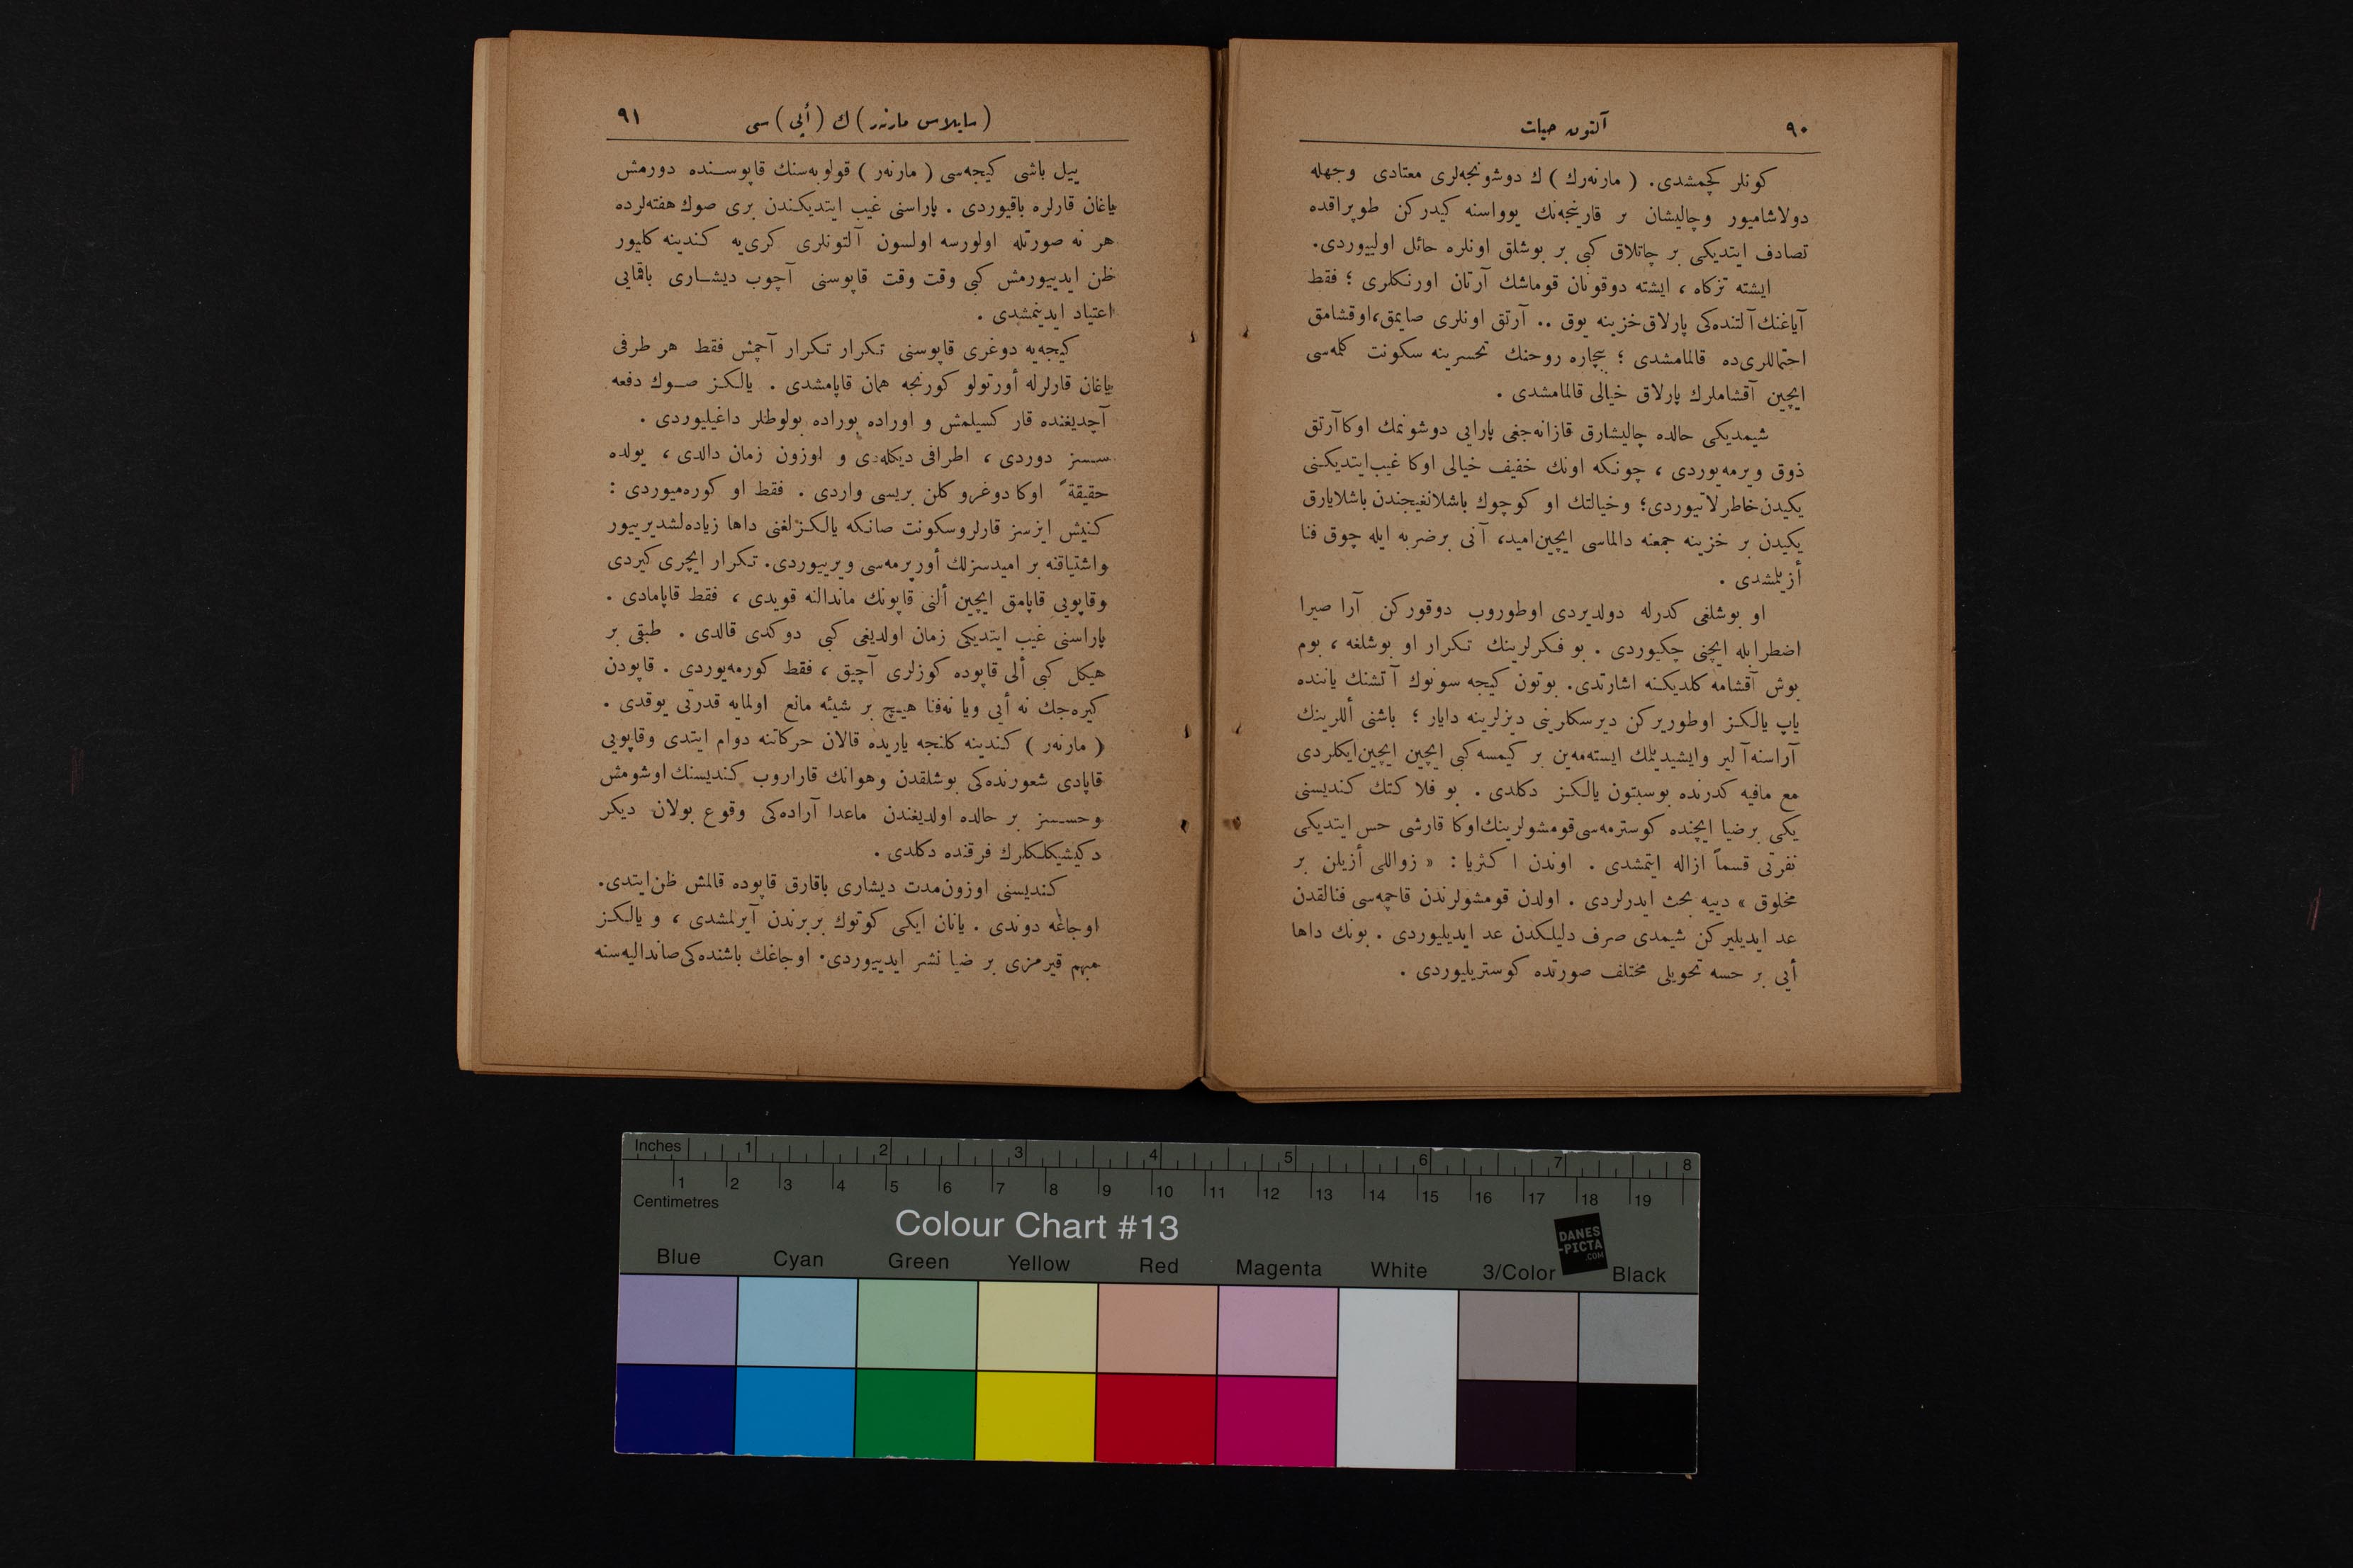 ٩٠
آلتون حیات
كونلر كچمشدی. ( مارنه‌رك ) ك دوشونجه‌لری معتادی وجهله
دولاشامیور وچالیشان بر قارینجه‌نك یوواسنه كیدركن طوپراقده
تصادف ایتدیكی بر چاتلاق كبی بر بوشلق اونلره حائل اولییوردی.
ایشته تزكاه ، ایشته دوقونان قوماشك آرتان اورنكلری ؛ فقط
آیاغنك آلتنده‌كی پارلاق خزینه یوق .. آرتق اونلری صایمق، اوقشامق
احتماللری‌ده قالمامشدی ؛ بیچاره روحنك تحسرینه سكونت كله‌سی
ایچین آقشاملرك پارلاق خیالی قالمامشدی .
شیمدیكی حالده چالیشارق قازانه‌جغی پارایی دوشونمك اوكا آرتق
ذوق ویرمه‌یوردی ، چونكه اونك خفیف خیالی اوكا غیب ایتدیكنی
یكیدن خاطرلاتیوردی؛ وخیالتك او كوچوك باشلانغیجندن باشلایارق
یكیدن بر خزینه جمعنه دالماسی ایچین امید، آنی برضربه ایله چوق فنا
أزیلمشدی .
او بوشلغی كدرله دولدیردی اوطوروب دوقوركن آرا صیرا
اضطرابله ایچنی چكیوردی . بو فكرلرینك تكرار او بوشلغه ، بوم
بوش آقشامه كلدیكنه اشارتدی. بوتون كیجه سونوك آتشنك یاننده
یاپ یالكز اوطوریركن دیرسكلرینی دیزلرینه دایار ؛ باشنی أللرینك
آراسنه آلیر وایشیدیلمك ایسته‌مه‌ین بر كیمسه كبی ایچین ایچین ایكلردی
مع مافیه كدرنده بوسبتون یالكز دكلدی . بو فلاكتك كندیسنی
یكی برضیا ایچنده كوسترمه‌سی قومشولرینك اوكا قارشی حس ایتدیكی
نفرتی قسماً ازاله ایتمشدی . اوندن اكثریا : « زواللی أزیلن بر
مخلوق » دییه بحث ایدرلردی . اولدن قومشولرندن قاچمه‌سی فنالقدن
عد ایدیلیركن شیمدی صرف دلیلكدن عد ایدیلیوردی . بونك داها
أیی بر حسه تحویلی مختلف صورتده كوستریلیوردی .
( سایلاس مارنه‌ر ) ك ( أپی ) سی
٩١
ییل باشی كیجه‌سی ( مارنه‌ر ) قولوبه‌سنك قاپوسنده دورمش
یاغان قارلره باقیوردی . پاراسنی غیب ایتدیكندن بری صوك هفته‌لرده
هر نه صورتله اولورسه اولسون آلتونلری كری‌یه كندینه كلیور
ظن ایدییورمش كبی وقت وقت قاپوسنی آچوب دیشاری باقمایی
اعتیاد ایدینمشدی .
كیجه‌یه دوغری قاپوسنی تكرار تكرار آچمش فقط هر طرفی
یاغان قارلرله أورتولو كورنجه همان قاپامشدی . یالكز صوك دفعه
آچدیغنده قار كسیلمش و اوراده بوراده بولوطلر داغیلیوردی .
سسسز دوردی ، اطرافی دیكله‌دی و اوزون زمان دالدی ، یولده
حقیقةً اوكا دوغرو كلن بریسی واردی . فقط او كوره‌میوردی :
كنیش ایزسز قارلروسكونت صانكه یالكزلغنی داها زیاده‌لشدیرییور
واشتیاقنه بر امیدسزلك أورپرمه‌سی ویرییوردی. تكرار ایچری كیردی
وقاپویی قاپامق ایچین ألنی قاپونك ماندالنه قویدی ، فقط قاپامادی .
پاراسنی غیب ایتدیكی زمان اولدیغی كبی دوكدی قالدی . طبقی بر
هیكل كبی ألی قاپوده كوزلری آچیق ، فقط كورمه‌یوردی . قاپودن
كیره‌جك نه أیی ویا نه‌فنا هیچ بر شیئه مانع اولمایه قدرتی یوقدی .
( مارنه‌ر ) كندینه كلنجه یاریده قالان حركاتنه دوام ایتدی وقاپویی
قاپادی شعورنده‌كی بوشلقدن وهوانك قاراروب كندیسنك اوشومش
وحسسز بر حالده اولدیغندن ماعدا آراده‌كی وقوع بولان دیكر
دكیشیكلكلرك فرقنده دكلدی .
كندیسنی اوزون‌مدت دیشاری باقارق قاپوده قالمش ظن ایتدی.
اوجاغه دوندی . یانان ایكی كوتوك بربرندن آیرلمشدی ، و یالكز
مبهم قیرمزی بر ضیا نشر ایدییوردی. اوجاغك باشنده‌كی صاندالیه‌سنه
Inches 1 2 3 4 5 6 7 8
1 2 3 4 5 6 7 8 9 10 11 12 13 14 15 16 17 18 19
Centimetres
Colour Chart #13
DANES
-PICTA
.COM
Blue Cyan Green Yellow Red Magenta White 3/Color Black